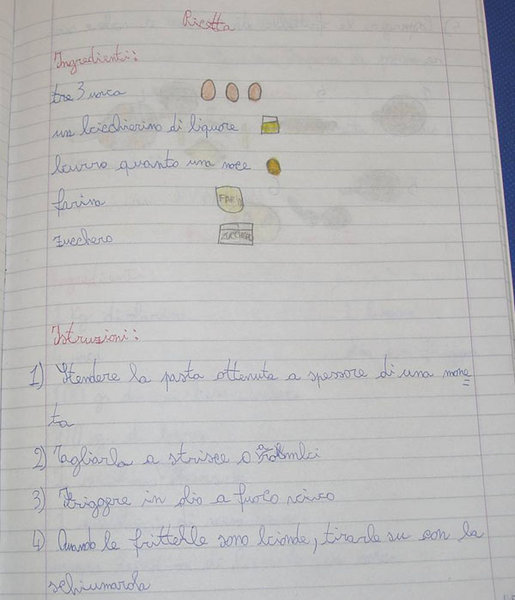 Ricetta
Ingredienti:
tre 3 uova
un bicchierino di liquore
burro quanto una noce
farina FARI
zucchero ZUCCHERO
Istruzioni:
1) Stendere la pasta ottenuta a spessore di una mone
ta
2) Tagliarla a strisce o a rombi
3) Friggere in olio a fuoco vivo
4) Quando le frittelle sono bionde, tirarle su con la
schiumarola